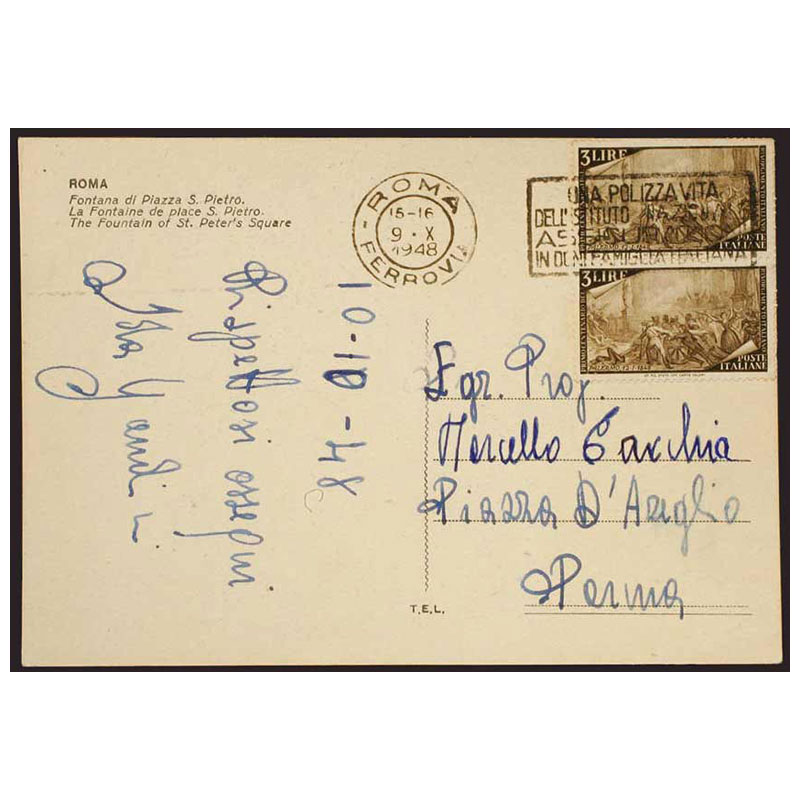 ROMA
Fontana di Piazza S. Pietro.
La Fontaine de place S. Pietro.
The Fountain of St. Peter's Square
ROMA
15-16
9 · X
1948
FERROVIA
UNA POLIZZA VITA
DELL'ISTITUTO
IN OGNI FAMIGLIA ITALIANA
3 LIRE
POSTE
ITALIANE
3 LIRE
PALERMO 12-1-1848
POSTE
ITALIANE
10-10-48
Rispettosi ossequi
Egr. Prof.
Marcello
Piazza D'Azeglio
Parma
T.E.L.